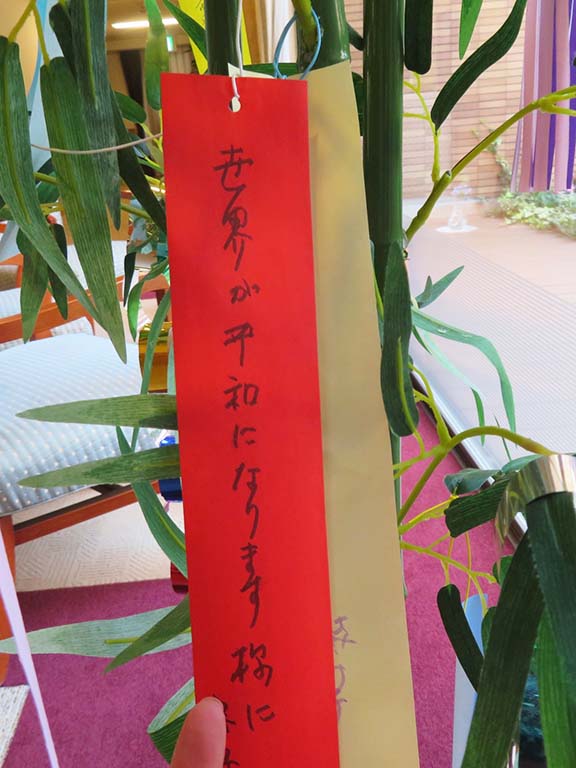 世界が平和になります様に